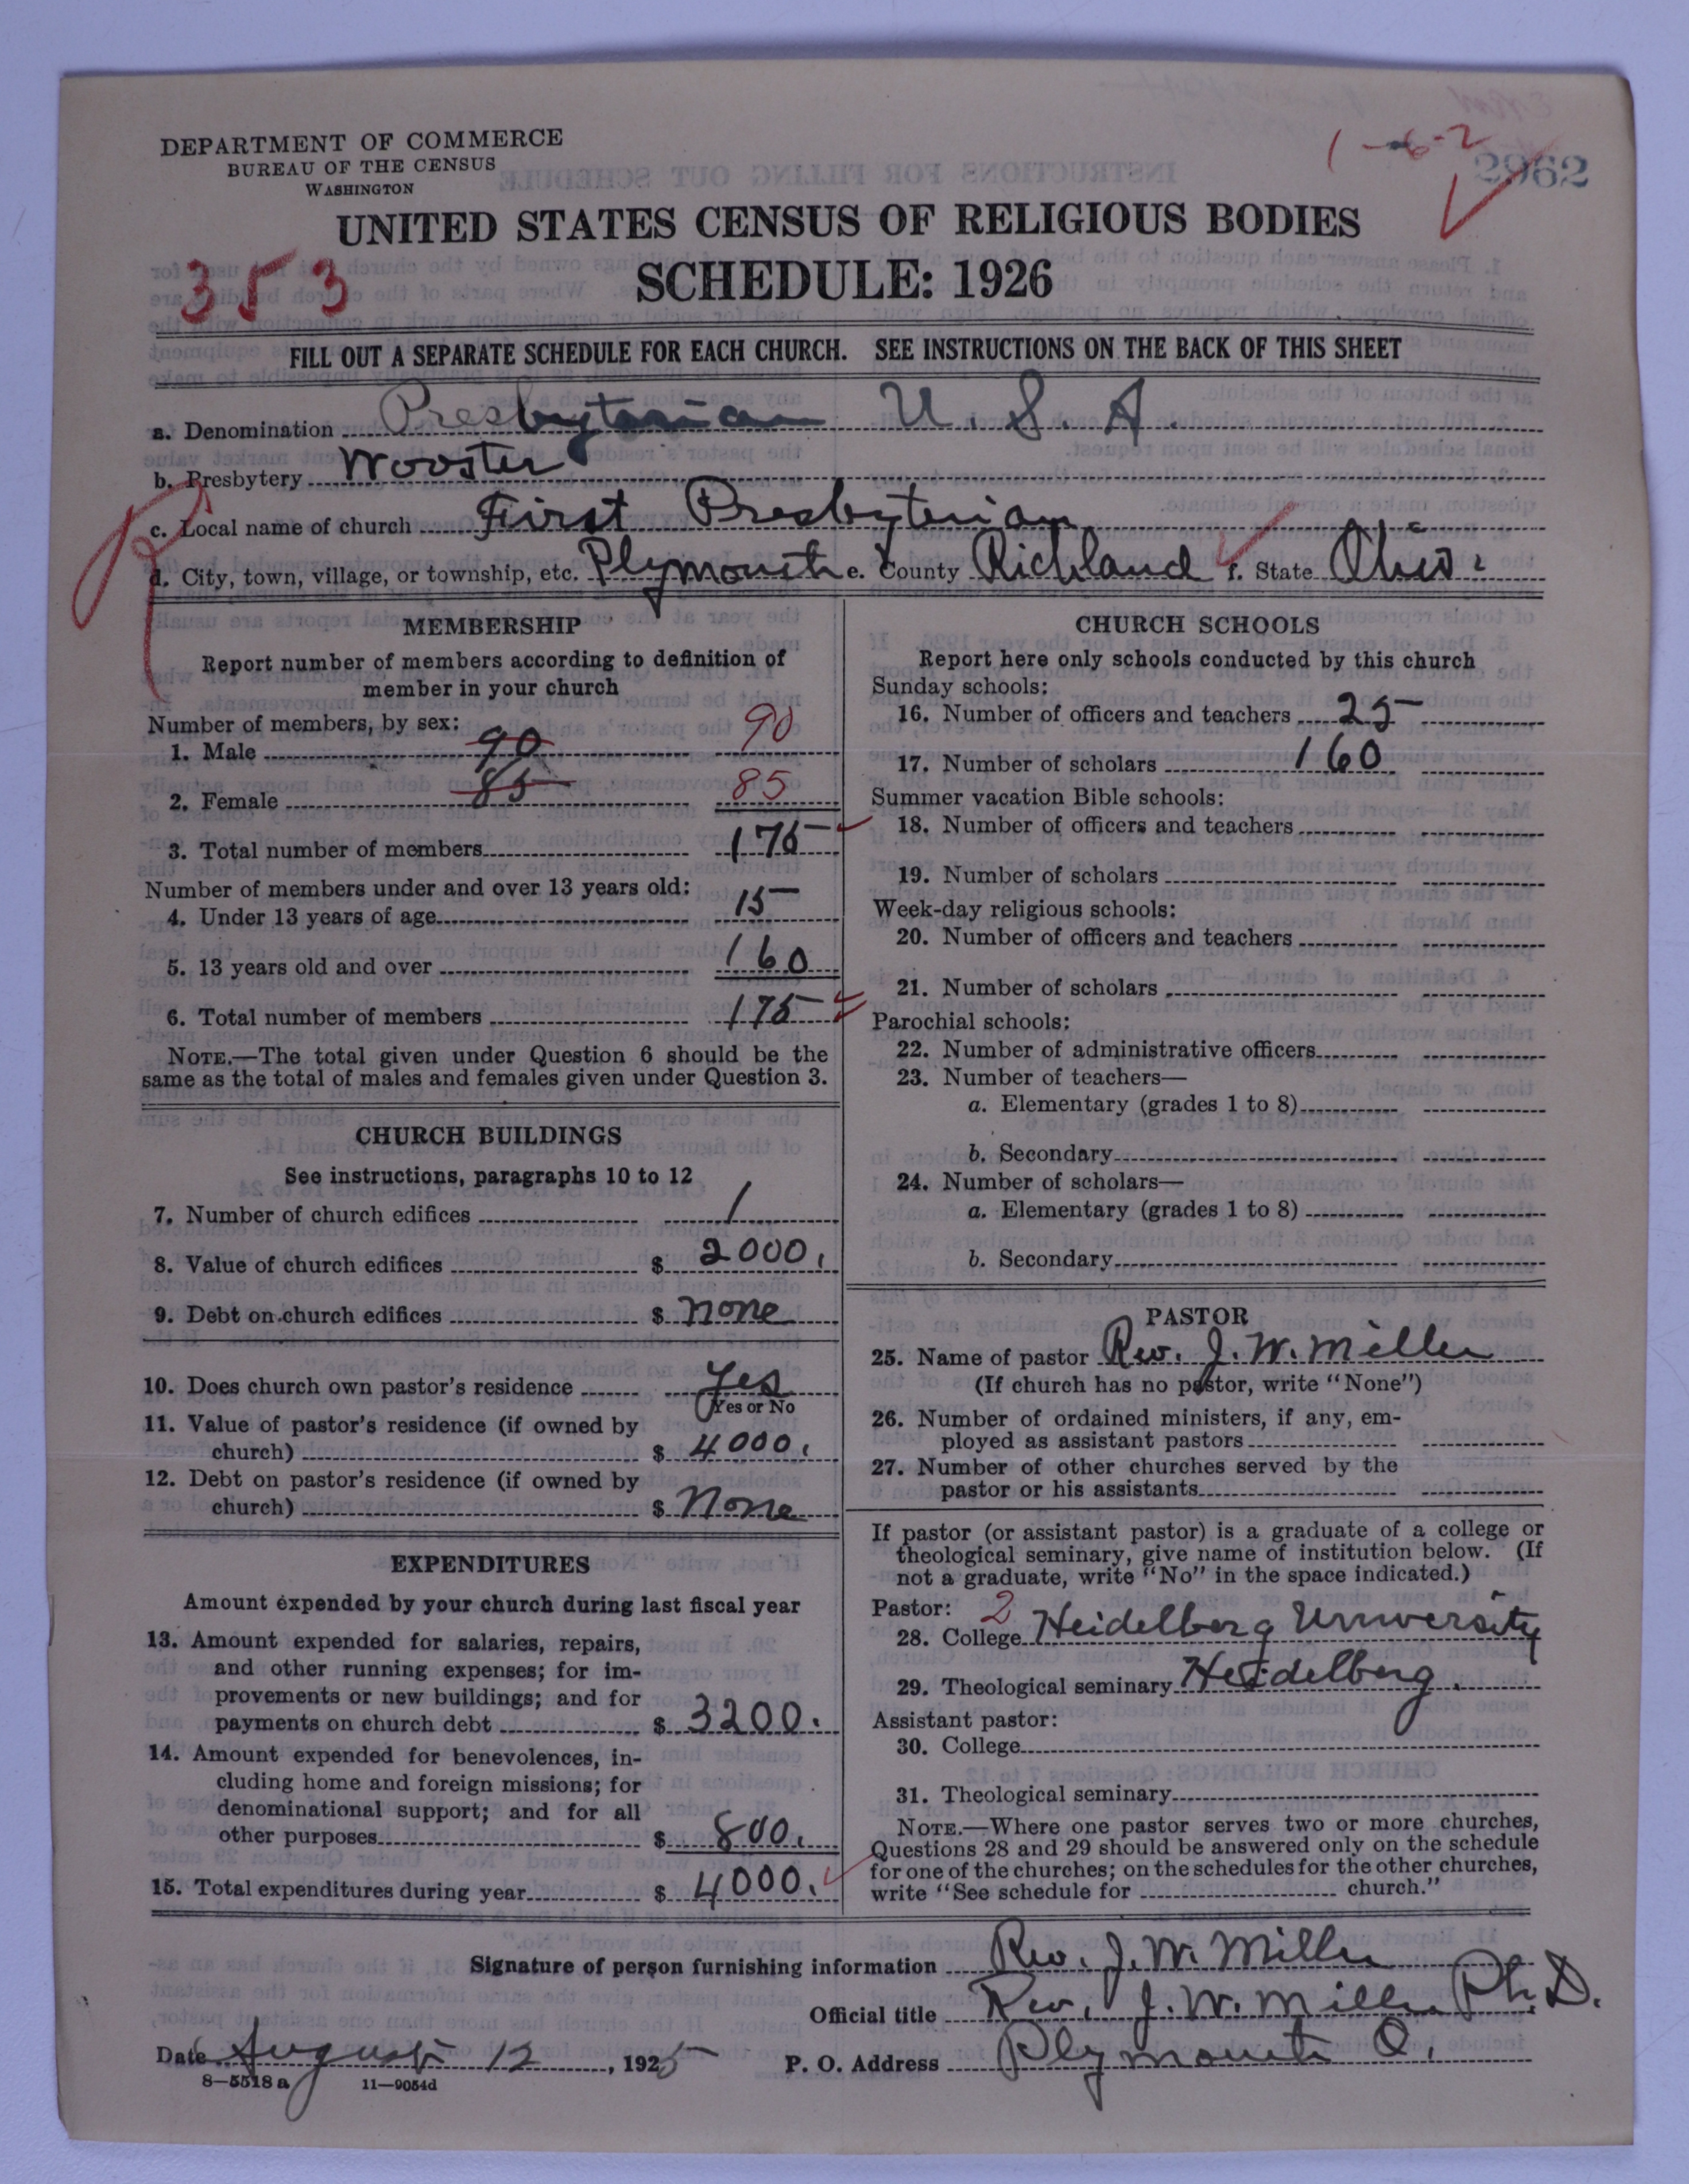 DEPARTMENT OF COMMERCE
BUREAU OF THE CENSUS
WASHINGTON
1-6-2
2962
UNITED STATES CENSUS OF RELIGIOUS BODIES
SCHEDULE: 1926
353
FILL OUT A SEPARATE SCHEDULE FOR EACH CHURCH. SEE INSTRUCTIONS ON THE BACK OF THIS SHEET
a. Denomination Presbyterian U. S. A.
b. Presbytery Wooster
c. Local name of church First Presbyterian
d. City, town, village, or township, etc. Plymouth e. County Richland f. State Ohio
MEMBERSHIP
Report number of members according to definition of
member in your church
Number of members, by sex:
1. Male 90 90
2. Female 85 85
3. Total number of members 175
Number of members under and over 13 years old:
4. Under 13 years of age 15
5. 13 years old and over 160
6. Total number of members 175
NOTE.—The total given under Question 6 should be the
same as the total of males and females given under Question 3.
CHURCH BUILDINGS
See instructions, paragraphs 10 to 12
7. Number of church edifices 1
8. Value of church edifices $ 2000.
9. Debt on church edifices $ none
10. Does church own pastor's residence Yes
Yes or No
11. Value of pastor's residence (if owned by
church) $ 4000.
12. Debt on pastor's residence (if owned by
church) $ None
EXPENDITURES
Amount expended by your church during last fiscal year
13. Amount expended for salaries, repairs,
and other running expenses; for im-
provements or new buildings; and for
payments on church debt $ 3200.
14. Amount expended for benevolences, in-
cluding home and foreign missions; for
denominational support; and for all
other purposes $ 800.
15. Total expenditures during year $ 4000.
CHURCH SCHOOLS
Report here only schools conducted by this church
Sunday schools:
16. Number of officers and teachers 25
17. Number of scholars 160
Summer vacation Bible schools:
18. Number of officers and teachers
19. Number of scholars
Week-day religious schools:
20. Number of officers and teachers
21. Number of scholars
Parochial schools:
22. Number of administrative officers
23. Number of teachers—
a. Elementary (grades 1 to 8)
b. Secondary
24. Number of scholars—
a. Elementary (grades 1 to 8)
b. Secondary
PASTOR
25. Name of pastor Rev. J. W. Miller
(If church has no pastor, write "None")
26. Number of ordained ministers, if any, em-
ployed as assistant pastors
27. Number of other churches served by the
pastor or his assistants
If pastor (or assistant pastor) is a graduate of a college or
theological seminary, give name of institution below. (If
not a graduate, write "No" in the space indicated.)
Pastor: 2
28. College Heidelberg University
29. Theological seminary Heidelberg.
Assistant pastor:
30. College
31. Theological seminary
NOTE.—Where one pastor serves two or more churches,
Questions 28 and 29 should be answered only on the schedule
for one of the churches; on the schedules for the other churches,
write "See schedule for church."
Signature of person furnishing information Rev. J. W. Miller
Official title Rev. J. W. Miller Ph. D.
Date August 12, 1925 P. O. Address Plymouth O.
8—5518a 11—9054d